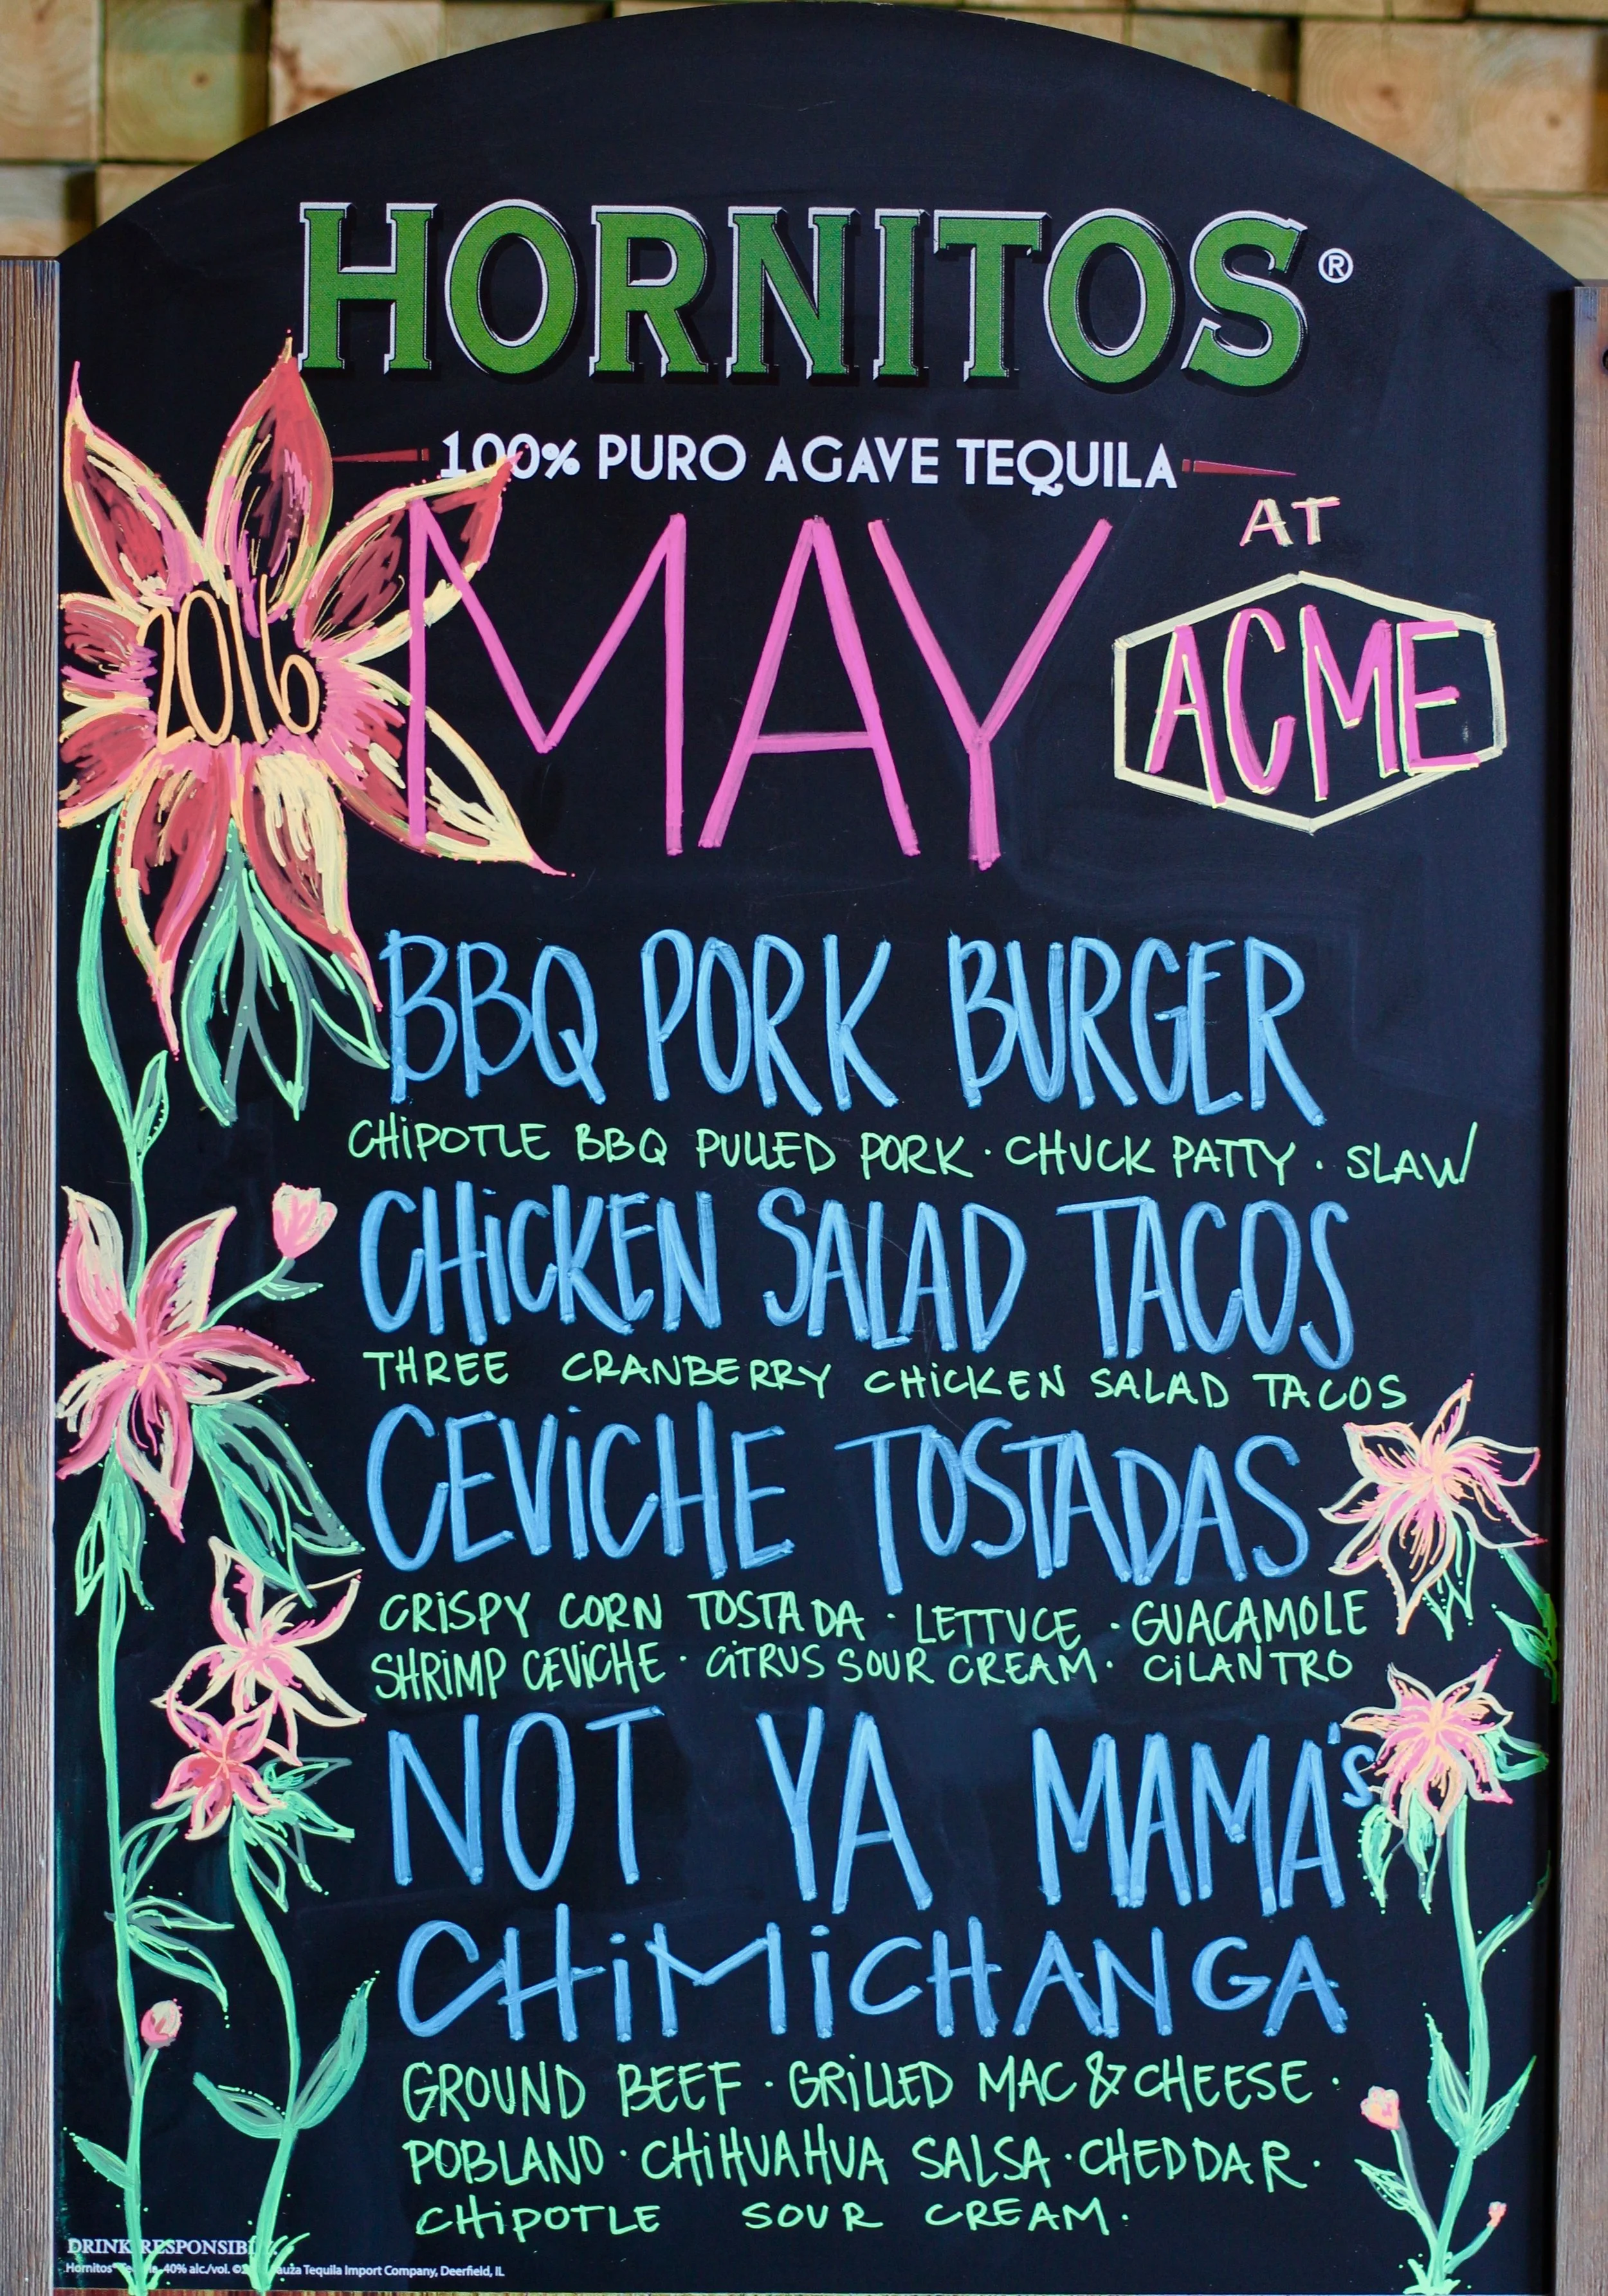 HORNITOS®
100% PURO AGAVE TEQUILA
2016
MAY
AT
ACME
BBQ PORK BURGER
CHiPOTLE BBQ PULLED PORK · CHUCK PATTY · SLAW
CHiCKEN SALAD TACOS
THREE CRANBERRY CHiCKEN SALAD TACOS
CEViCHE TOSTADAS
CRiSPY CORN TOSTADA · LETTUCE · GUACAMOLE
SHRiMP CEViCHE · CiTRUS SOUR CREAM · CiLANTRO
NOT YA MAMA's
CHiMiCHANGA
GROUND BEEF · GRiLLED MAC & CHEESE ·
POBLANO · CHiHUAHUA SALSA · CHEDDAR ·
CHiPOTLE SOUR CREAM ·
DRINK
Hornitos® 40% alc./vol. Tequila Import Company, Deerfield, IL